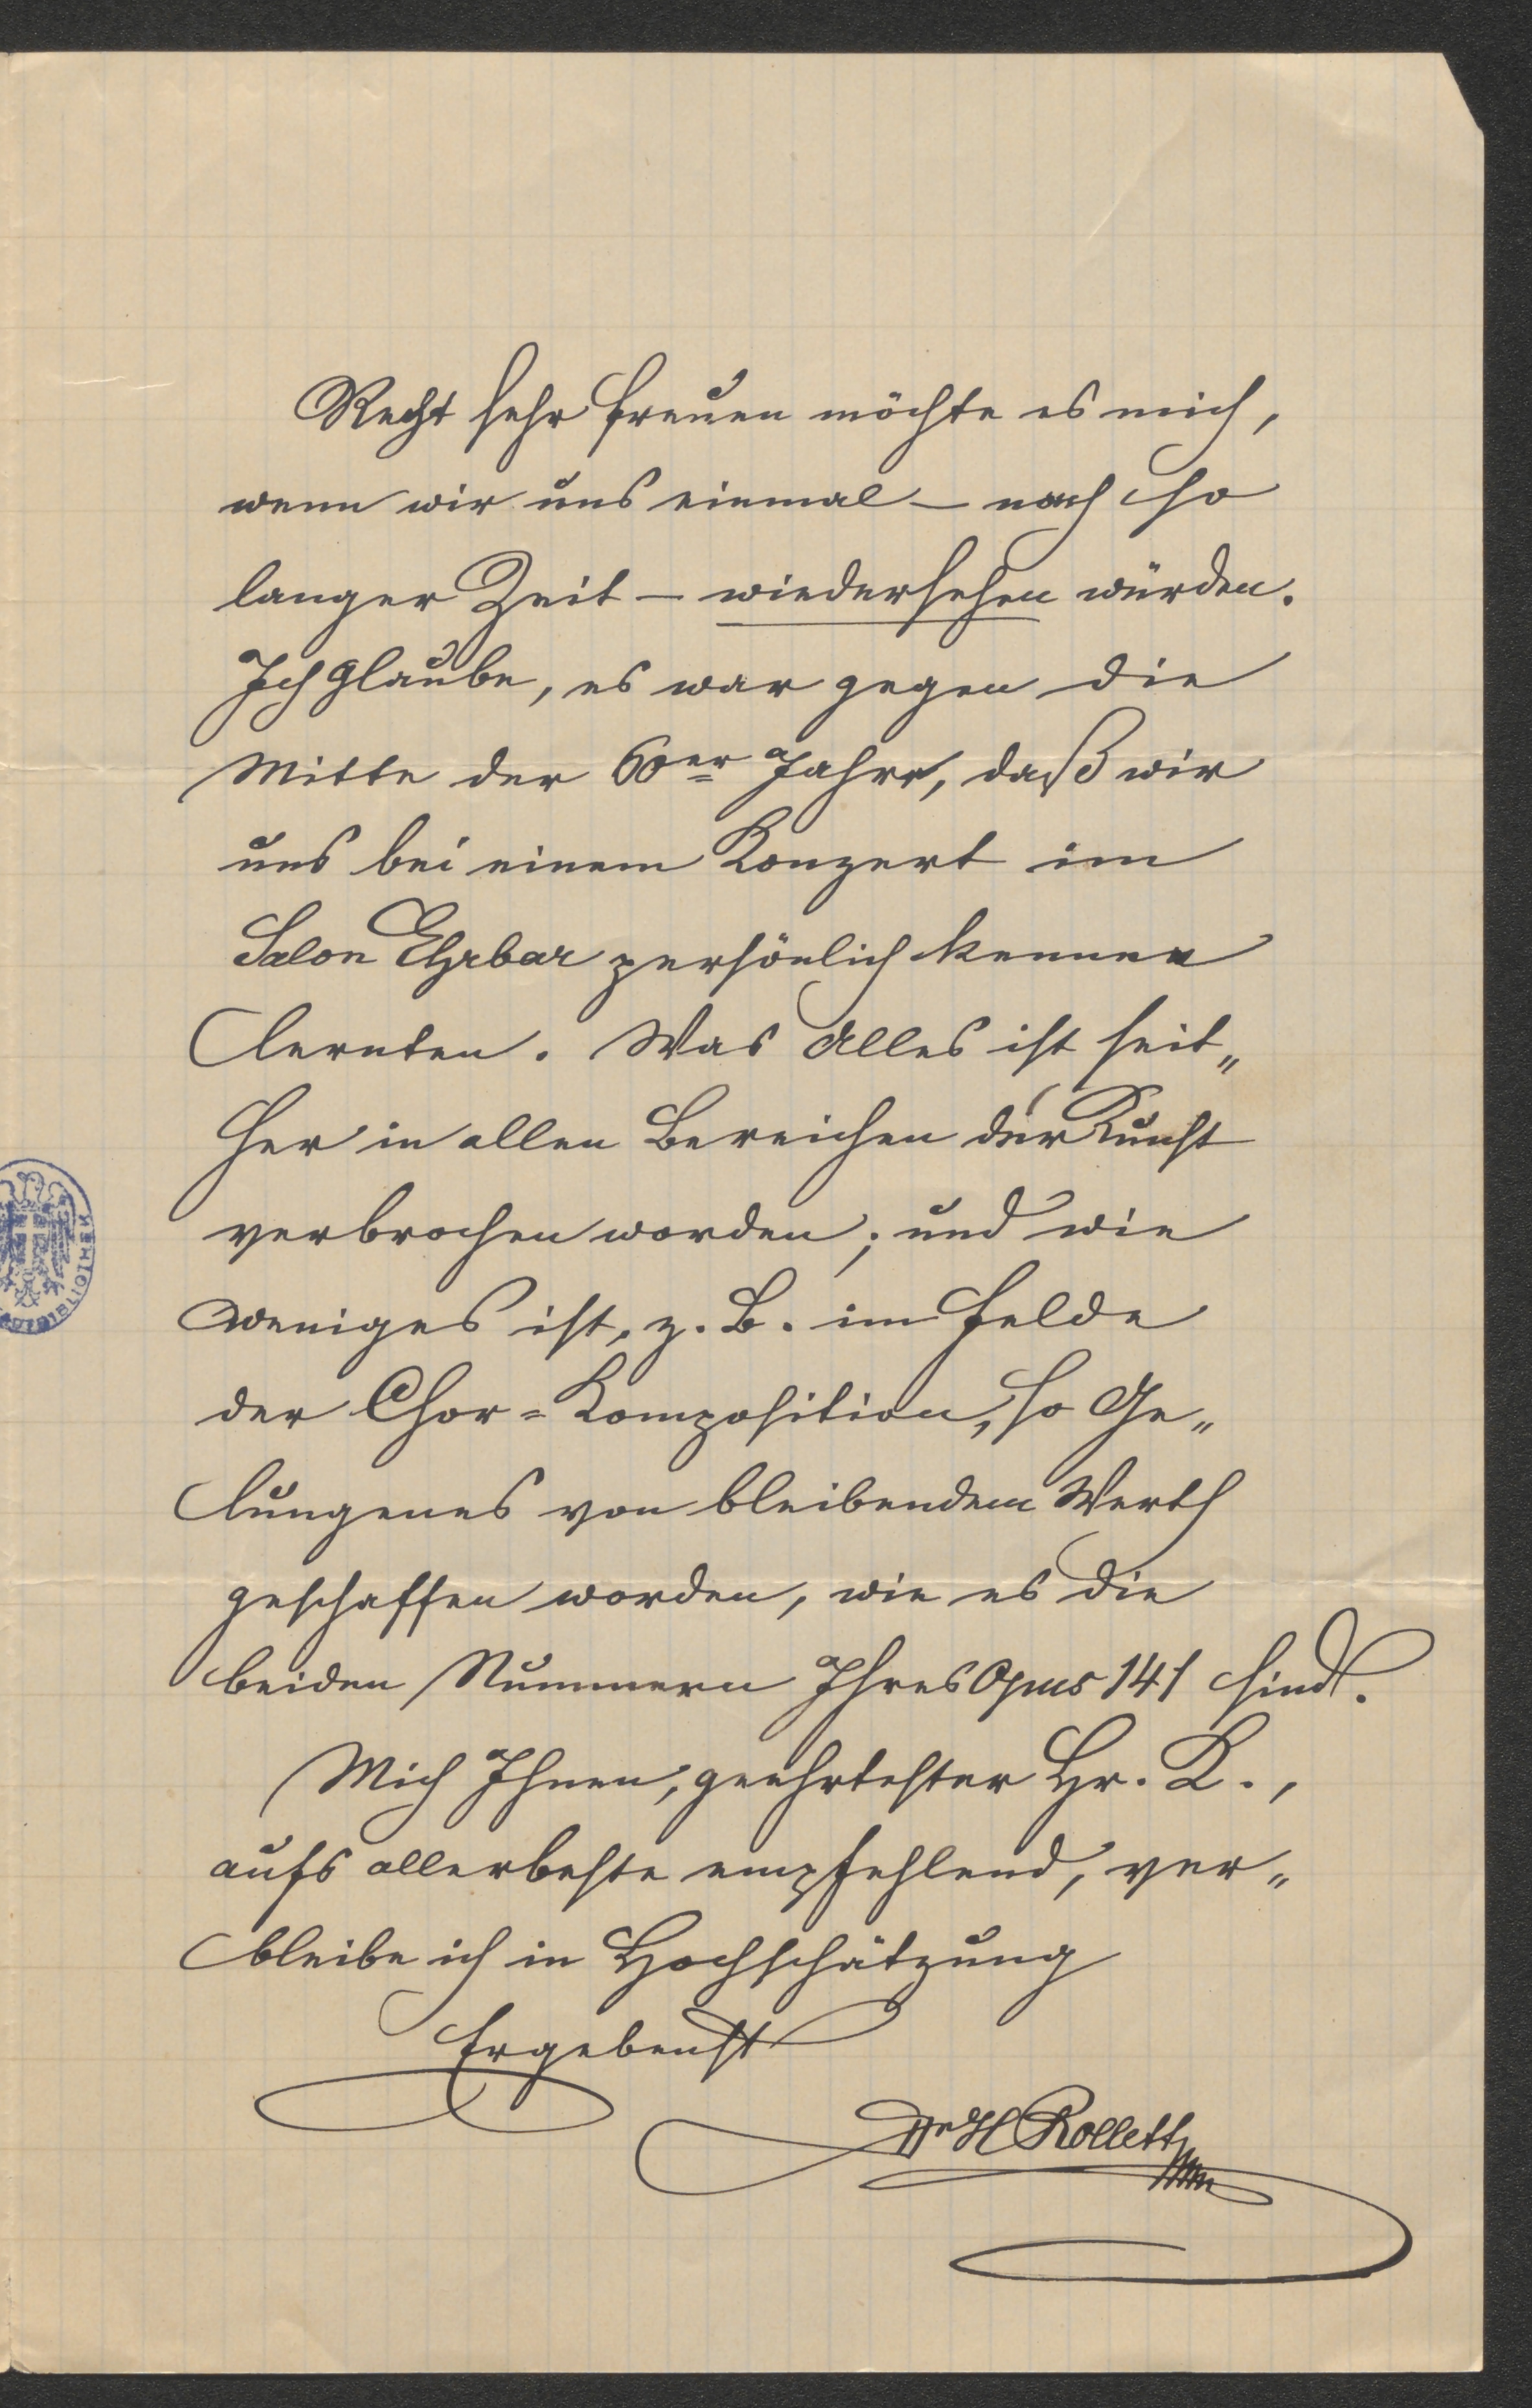 Recht sehr freuen möchte es mich,
wenn wir uns einmal – nach so
langer Zeit – wiedersehen würden.
Ich glaube, es war gegen die
Mitte der 60er Jahre, daß wir
uns bei einem Konzert im
Salon Ehrbar persönlich kennen
lernten. Was Alles ist seit„
her in allen Bereichen der Kunst
verbrochen worden; und wie
weniges ist, z. B. im Felde
der Chor=Komposition, so Ge„
lungenes von bleibendem Werth
geschaffen worden, wie es die
beiden Nummern Ihres Opus 141 sind.
Mich Ihnen, geehrtester Hr. K.,
aufs allerbeste empfehlend, ver„
bleibe ich in Hochschätzung
Ergebenst
Dr H Rollett